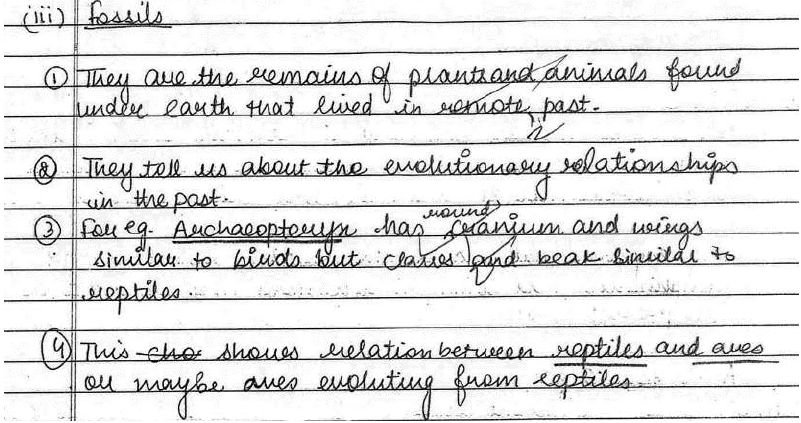 (iii) fossils
① They are the remains of plants and animals found
under earth that lived in remote past.
② They tell us about the evolutionary relationships
in the past.
round
③ For eg. Archaeopteryx has cranium and wings
similar to birds but claws and beak similar to
reptiles.
④ This sho shows relation between reptiles and aves
or maybe aves evoluting from reptiles